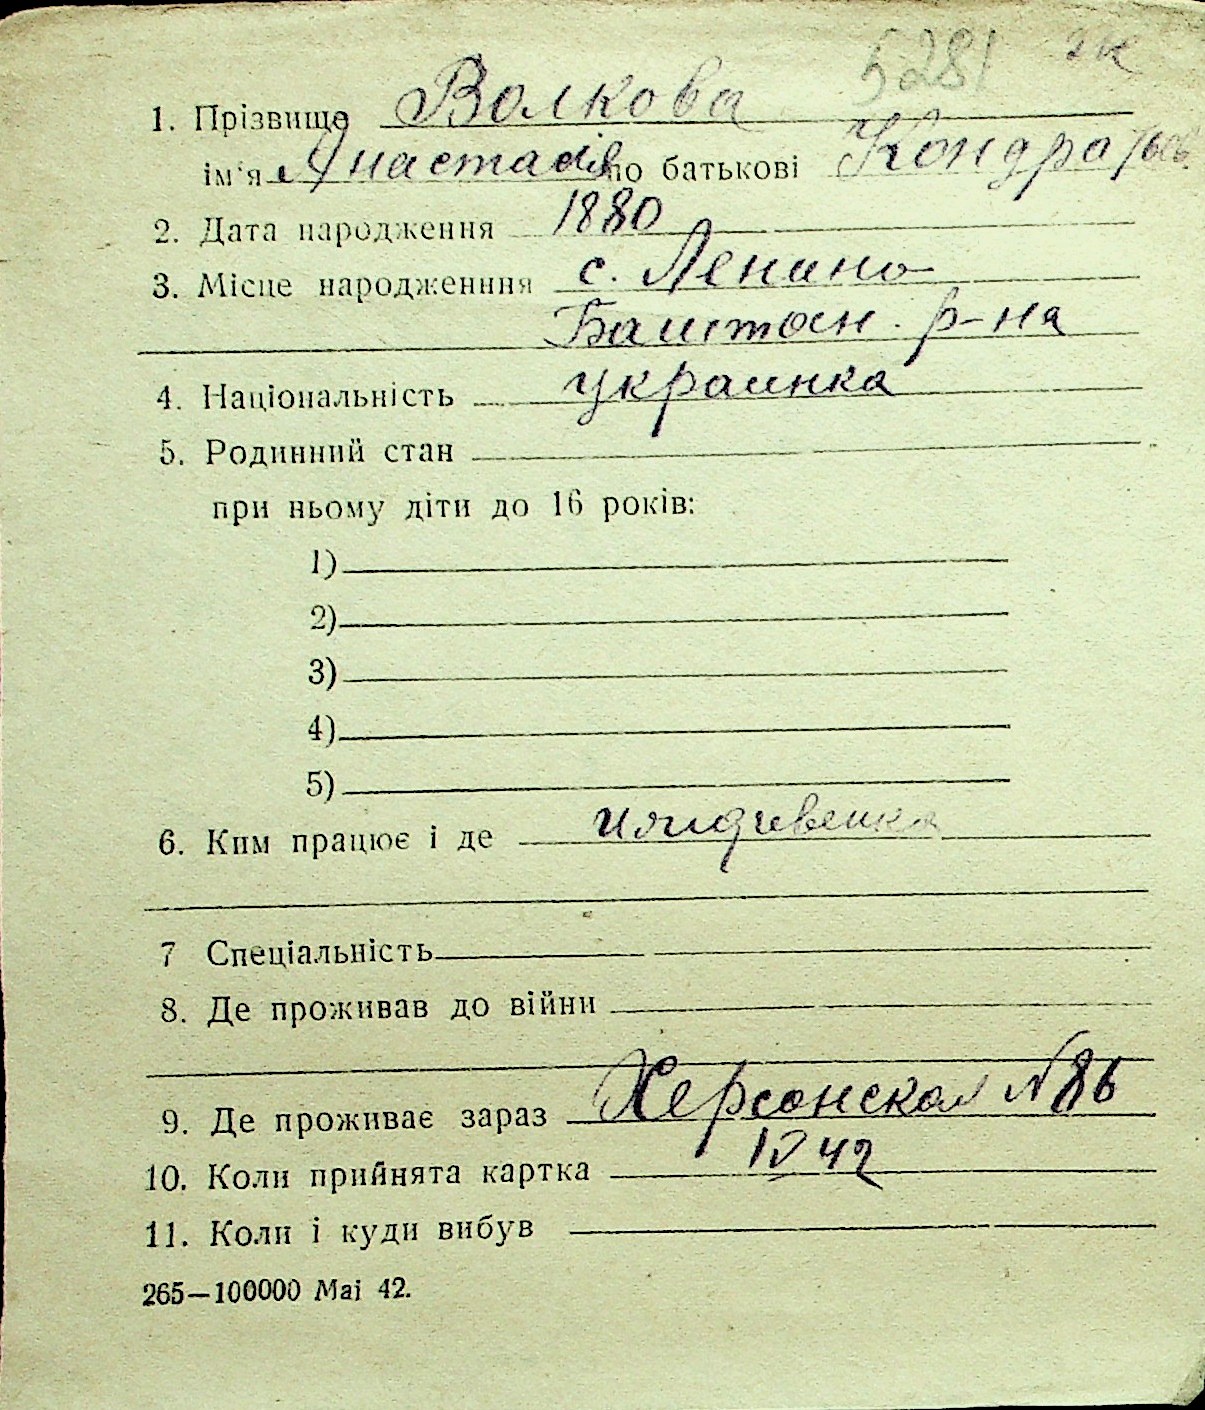 5281
1. Прізвище Волкова
ім'я Анастасія по батькові Кондратьев.
2. Дата народження 1880
3. Місце народженння с. Ленино
Баштан. р-на
4. Національність украинка
5. Родинний стан
при ньому діти до 16 років:
1)
2)
3)
4)
5)
6. Ким працює і де иждивенка
7 Спеціальність
8. Де проживав до війни
9. Де проживає зараз Херсонская № 86
10. Коли прийнята картка IV 42
11. Коли і куди вибув
265—100000 Mai 42.